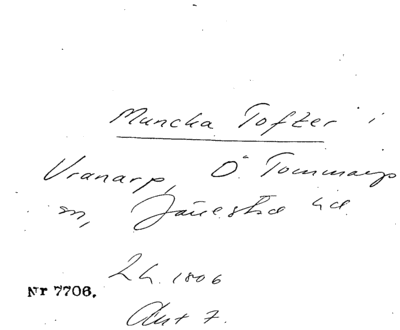 Muncka Tofter i
Vranarp, Ö Tommarp
sn, Järrestad hd.
2h. 1806
Nr 7706.
Akt 7.